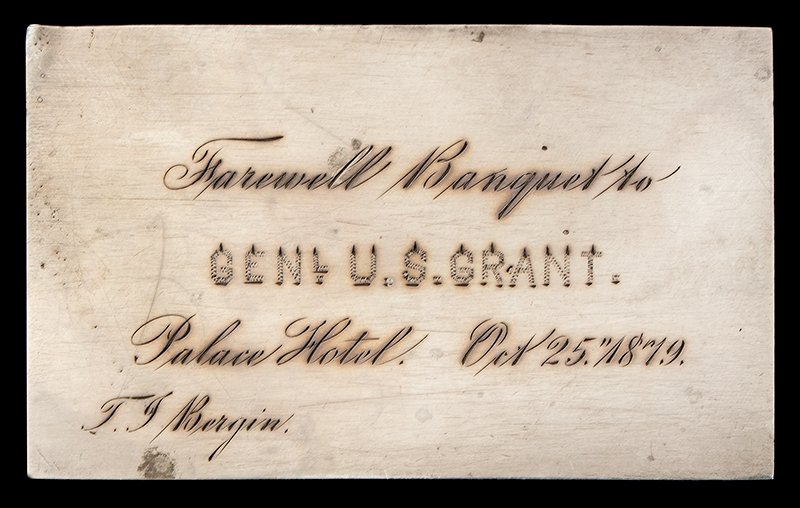 Farewell Banquet to
GENL U.S. GRANT.
Palace Hotel. Oct 25." 1879.
T. I Bergin.